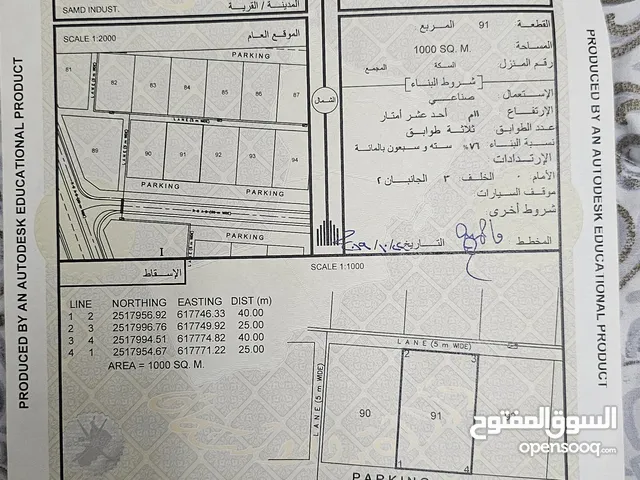 SAMD INDUST.
المدينة / القرية
SCALE 1:2000
الموقع العام
PARKING
81
82
83
84
85
86
87
LANE (5 m WIDE)
89
90
91
92
93
94
PARKING
PARKING
PARKING
الشمال
القطعة 91 المربع
المساحة 1000 SQ. M.
رقم المنزل السكة المجمع
[شروط البناء]
الإستعمال صناعي
الإرتفاع ١١م أحد عشر أمتار
عدد الطوابق ثلاثة طوابق
نسبة البناء ٧٦% سته و سبعون بالمائة
الإرتدادات:
الأمام ٠ الخلف ٣ الجانبان ٢
موقف السيارات
شروط أخرى
المخطط
التاريخ
PRODUCED BY AN AUTODESK EDUCATIONAL PRODUCT
PRODUCED BY AN AUTODESK EDUCATIONAL PRODUCT
الإسقاط
SCALE 1:1000
LINE NORTHING EASTING DIST (m)
1 2 2517956.92 617746.33 40.00
2 3 2517996.76 617749.92 25.00
3 4 2517994.51 617774.82 40.00
4 1 2517954.67 617771.22 25.00
AREA = 1000 SQ. M.
LANE (5 m WIDE)
LANE (5 m WIDE)
2
3
90
91
1
4
PARKING
السوق المفتوح
opensooq.com